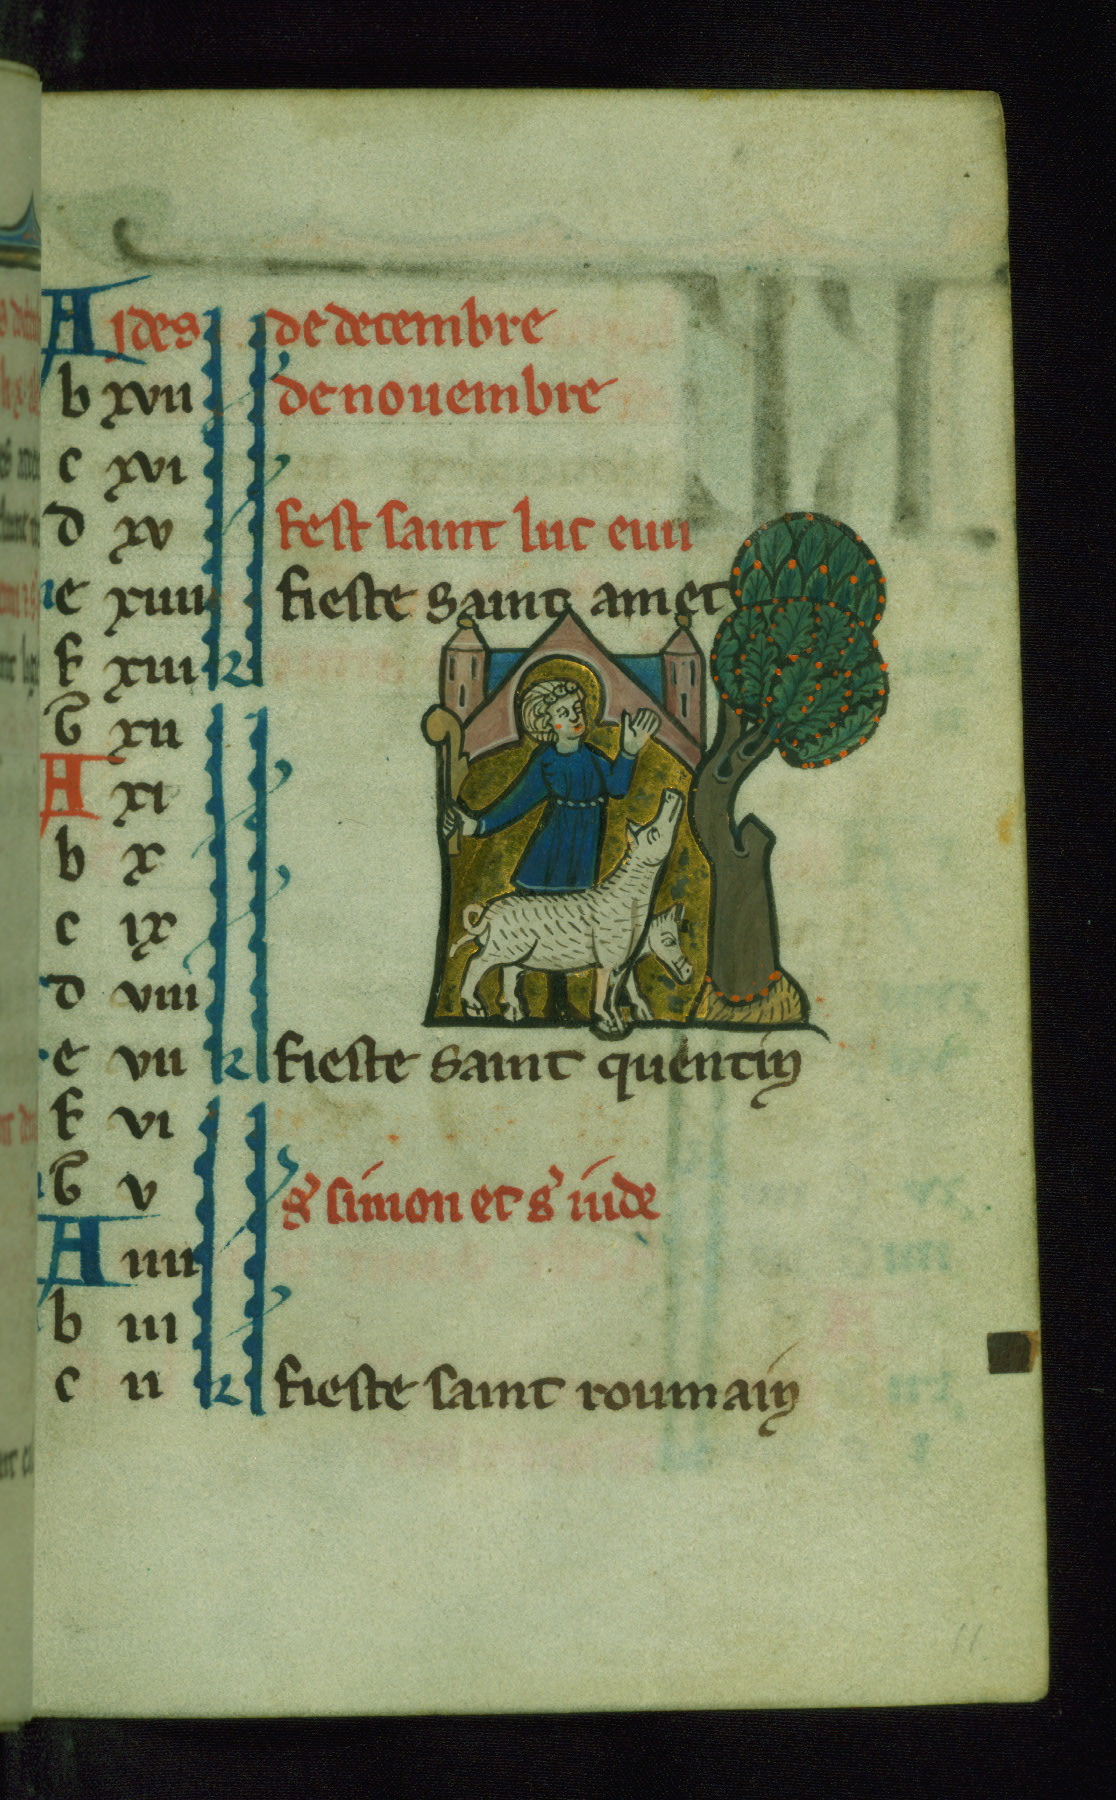 A ides de decembre
b xvii de nouembre
c xvi
d xv fest saint luc euu
e xiiii fieste saint amet
f xiii
G xii
A xi
b x
c ix
d viii
e vii fieste saint quentin
f vi
G v s' simon et s' iude
A iiii
b iii
c ii fieste saint roumain
11